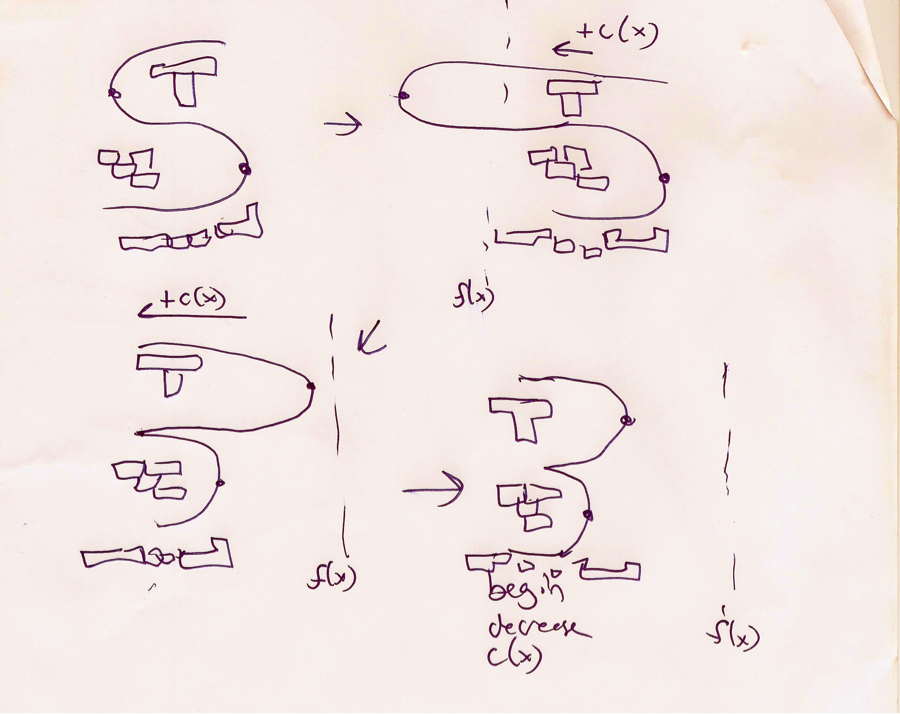 +c(x)
f(x)
+c(x)
f(x)
begin
decrease
c(x)
f(x)